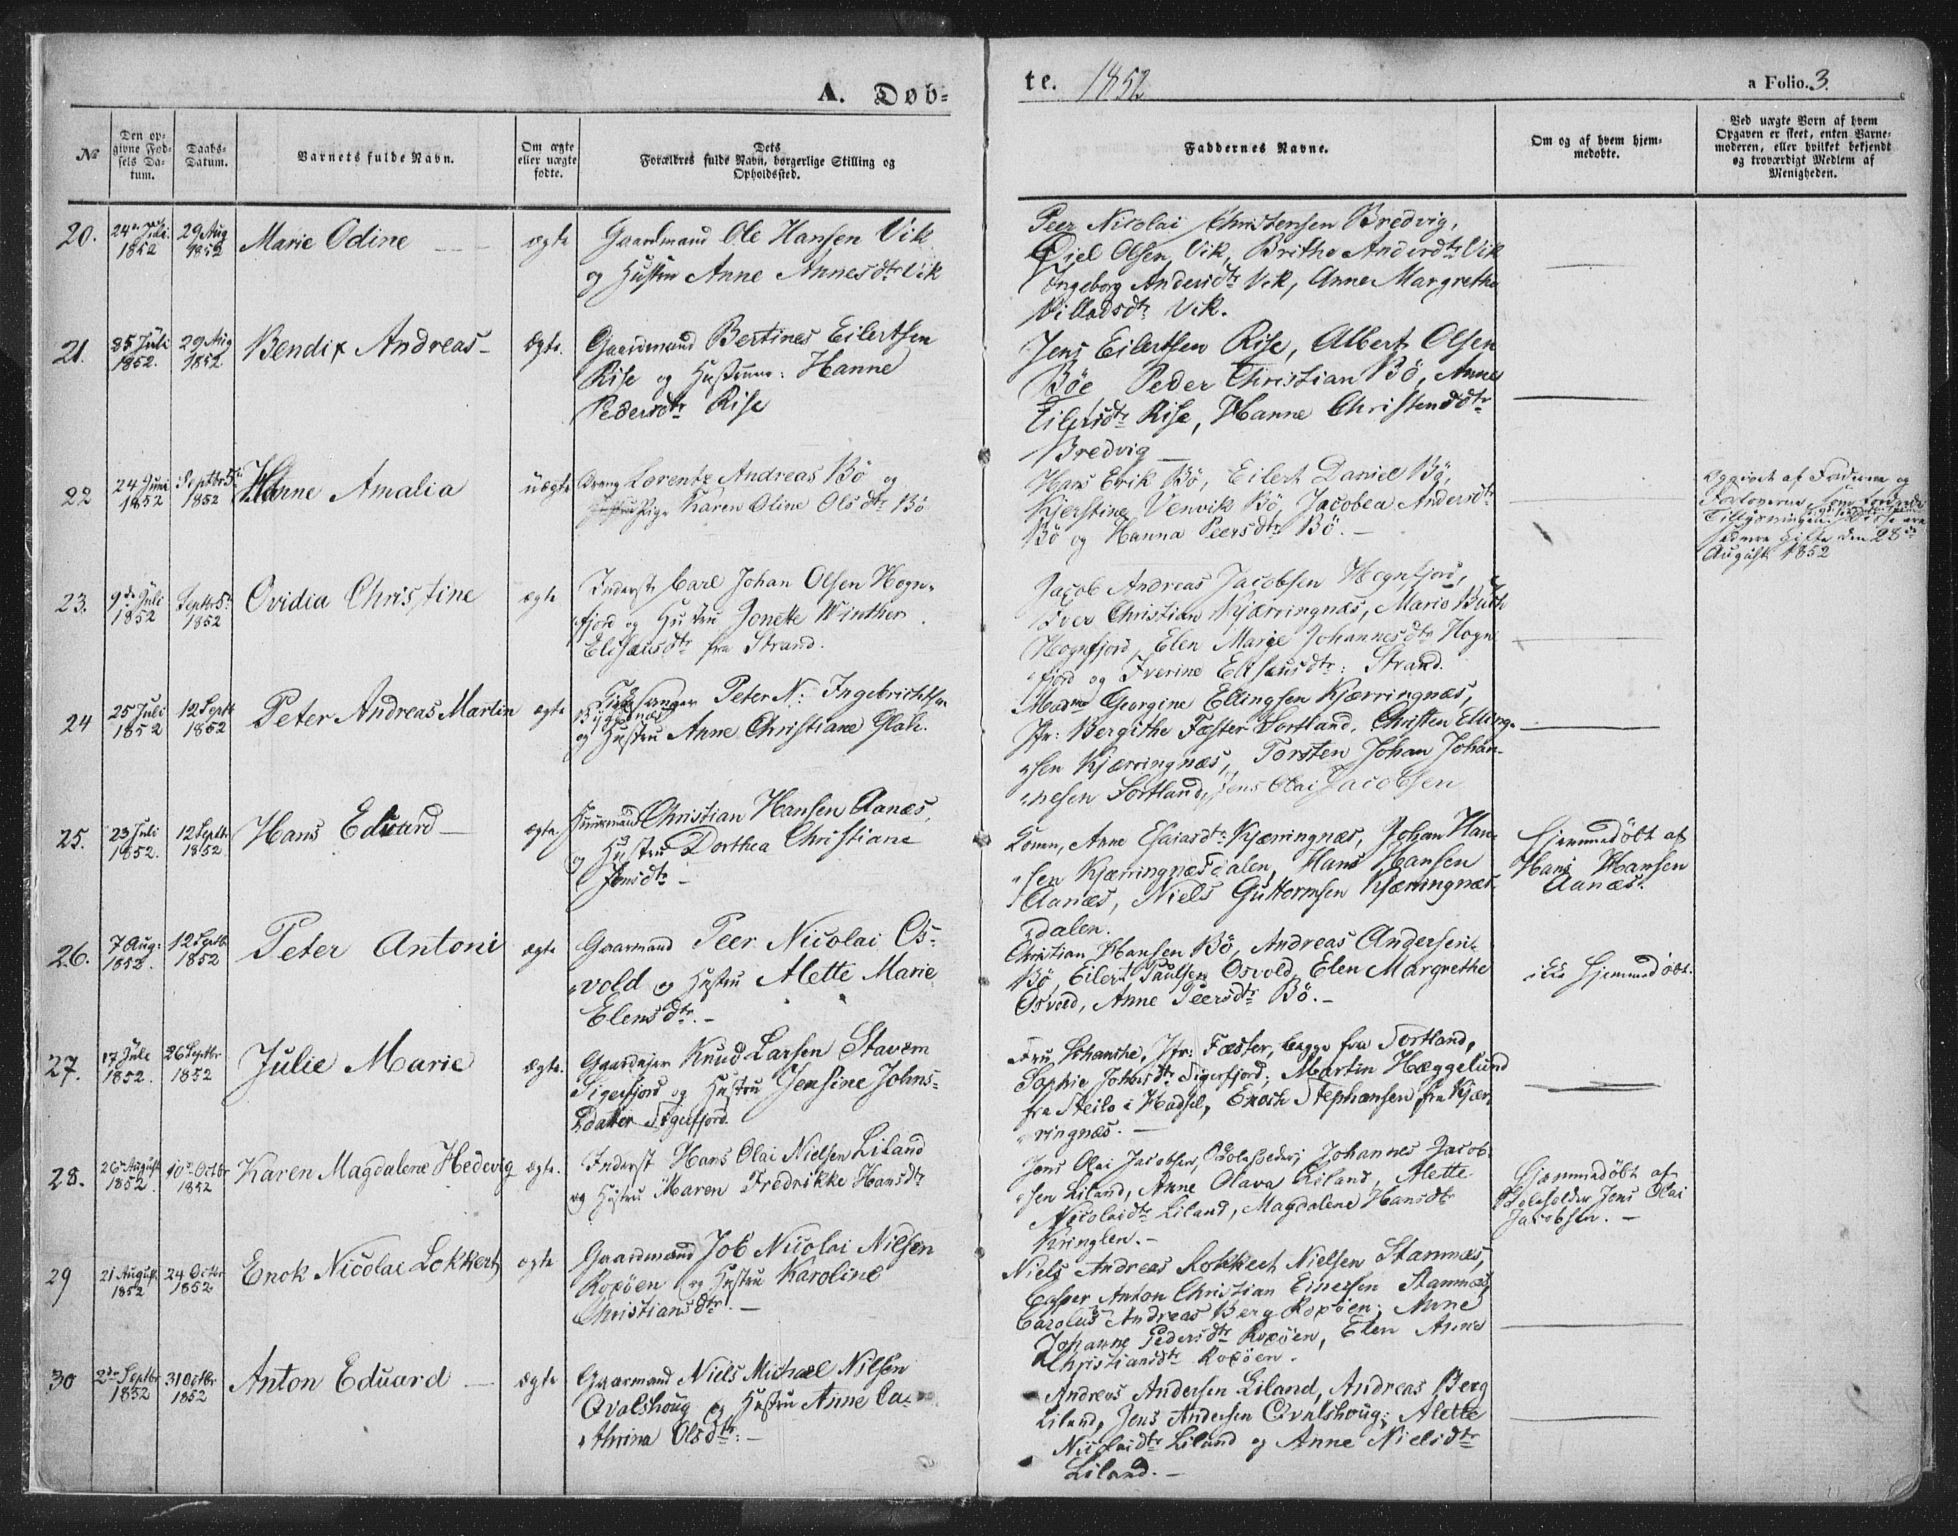 A. Døb-
te. 1852
a Folio. 3.
No
Den op-
givne Fød-
sels Da-
tum.
Daabs-
Datum.
Barnets fulde Navn.
Om ægte
eller uægte
fødte.
Dets
Forældres fulde Navn, borgerlige Stilling og
Opholdssted.
Faddernes Navne.
Om og af hvem hjem-
medøbte.
Ved uægte Born af hvem
Opgaven er skeet, enten Barne-
moderen, eller hvilket bekjendt
og troværdigt Medlem af
Menigheden.
20.
24de Juli
1852
29 Aug
1852
Marie Odine
ægte
Gaardmand Ole Hansen Vik
og Hustru Anne Annesdtr Vik
Peer Nicolai Christensen Bredvig,
Ojel Olsen Vik, Brithe Andersdtr Vik
Ingeborg Andersdtr Vik, Anne Margrethe
Villadsdtr Vik.
21.
25 Juli
1852.
29 Aug
1852
Bendix Andreas
ægte.
Gaardmand Bertines Eilertsen
Rise og Hustrue: Hanne
Pedersdtr Rise
Jens Eilertsen Rise, Albert Olsen
Böe Peder Christian Bö, Anne
Eilersdtr Rise, Hanne Christensdtr
Bredvig
22
24 Juni
1852
Septbr 5te
1852
Hanne Amalia
uægte
Dreng Lorentz Andreas Bö og
Pige Karen Oline Olsdtr Bö
Hans Erik Bö, Eilert Daniel Bö,
Kjerstine Venvik Bö, Jacobea Andersdtr
Bö og Hanna Peersdtr Bö.
Opgivet af Faderne og
Forloverne, som fordrede
Tillysningen. Disse ere
sednere gifte den 28de
August 1852
23.
9de Juli
1852
Septbr 5te
1852
Ovidia Christine
ægte
Inderst Carl Johan Olsen Hogn-
fjord og Hustru Jonette Winther
Elisæusdtr fra Strand.
Jacob Andreas Jacobsen Hognfjord,
Iver Christian Kjærringnæs, Marie Buth
Hognfjord, Elen Marie Johannesdtr Hogn
fjord og Iverine Elisæusdtr: Strand.
24
25 Juli
1852
12 Septbr
1852
Peter Andreas Martin
ægte
Kirkesanger Peter N: Ingebrichtsen
Bygdenæs
og Hustru Anne Christiane Glah.
Madme Georgine Ellingsen Kjærringnæs,
Jfr: Bergithe Fæster Sortland, Christen Elling-
sen Kjærringnæs, Torsten Johan Johan-
nesen Sortland, Jens Olai Jacobsen
25.
23 Juli
1852.
12 Septbr
1852.
Hans Edvard
ægte
Huusmand Christian Hansen Aanæs,
og Hustru Dorthea Christiane
Jensdtr
Konen, Anne Esaiasdtr Kjærringnæs, Johan Han-
sen Kjærringnæsdalen, Hans Hansen
Aanæs, Niels Guttormsen Kjærringnæs
dalen.
Hjemmedöbt af
Hans Hansen
Aanæs.
26.
7 Aug:
1852.
12 Septbr
1852
Peter Antoni
ægte
Gaarmand Peer Nicolai Os-
vold og Hustru Alette Marie
Elensdtr.
Christian Hansen Bö, Andreas Andersen
Bö, Eilert Paulsen Osvold, Elen Margrethe
Osvold, Anne Peersdtr Bö.
Ei Hjemmedöbt.
27.
17 Julie
1852.
26 Septbr
1852
Julie Marie
ægte.
Gaardejer Knud Larsen Stavem
Sigerfjord og Hustru Jensine Johns-
datter Sigerfjord.
Fru Schanche, Jfr: Fæster, begge fra Sortland,
Sophie Johnsdtr Sigerfjord, Martin Hæggelund
fra Steilo i Hadsel, Enoch Stephansen fra Kjær-
ringnæs.
28.
26 August
1852.
10de Octbr
1852
Karen Magdalene Hedevig
ægte.
Inderst Hans Olai Nielsen Liland
og Hustru Maren Fredrikke Hansdtr
Jens Olai Jacobsen, Skoleholder, Johannes Jacob-
sen Liland, Anne Olava Liland, Alette
Nicolaidtr Liland, Magdalene Hansdtr
Kringlen.
Hjemmedöbt af
Skoleholder Jens Olai
Jacobsen.
29
21 August
1852
24 Octbr
1852
Enok Nicolai Lokkert
ægte
Gaardmand Job Nicolai Nilsen
Roxöen og Hustru Karoline
Christiansdtr.
Niels Andreas Lokkert Nielsen Stamnæs,
Casper Anton Christian Einersen Stamnæs
Carolus Andreas Berg Roxöen, Anne
Johanne Pedersdtr Roxöen, Elen Anne
Christiansdtr Roxöen.
30
2den Septbr
1852
31 Octbr
1852
Anton Eduard
ægte
Gaarmand Niels Michael Nilsen
Qvalshoug og Hustru Anne Ca-
thrina Olsdtr:
Andreas Andersen Liland, Andreas Berg
Liland, Jens Andersen Qvalshoug, Alette
Nicolaidtr Liland og Anne Nielsdtr
Liland.